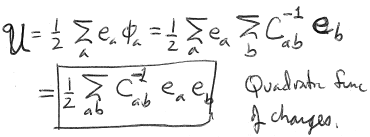 U = ½ Σ_a e_a φ_a = ½ Σ_a e_a Σ_b C_ab^{-1} e_b
= ½ Σ_ab C_ab^{-1} e_a e_b Quadratic func
of charges.